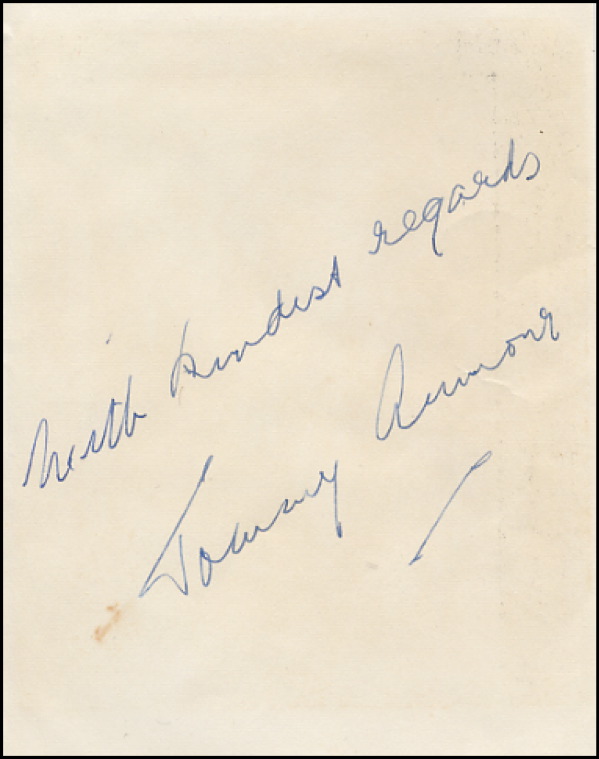 With kindest regards
Tommy Armour